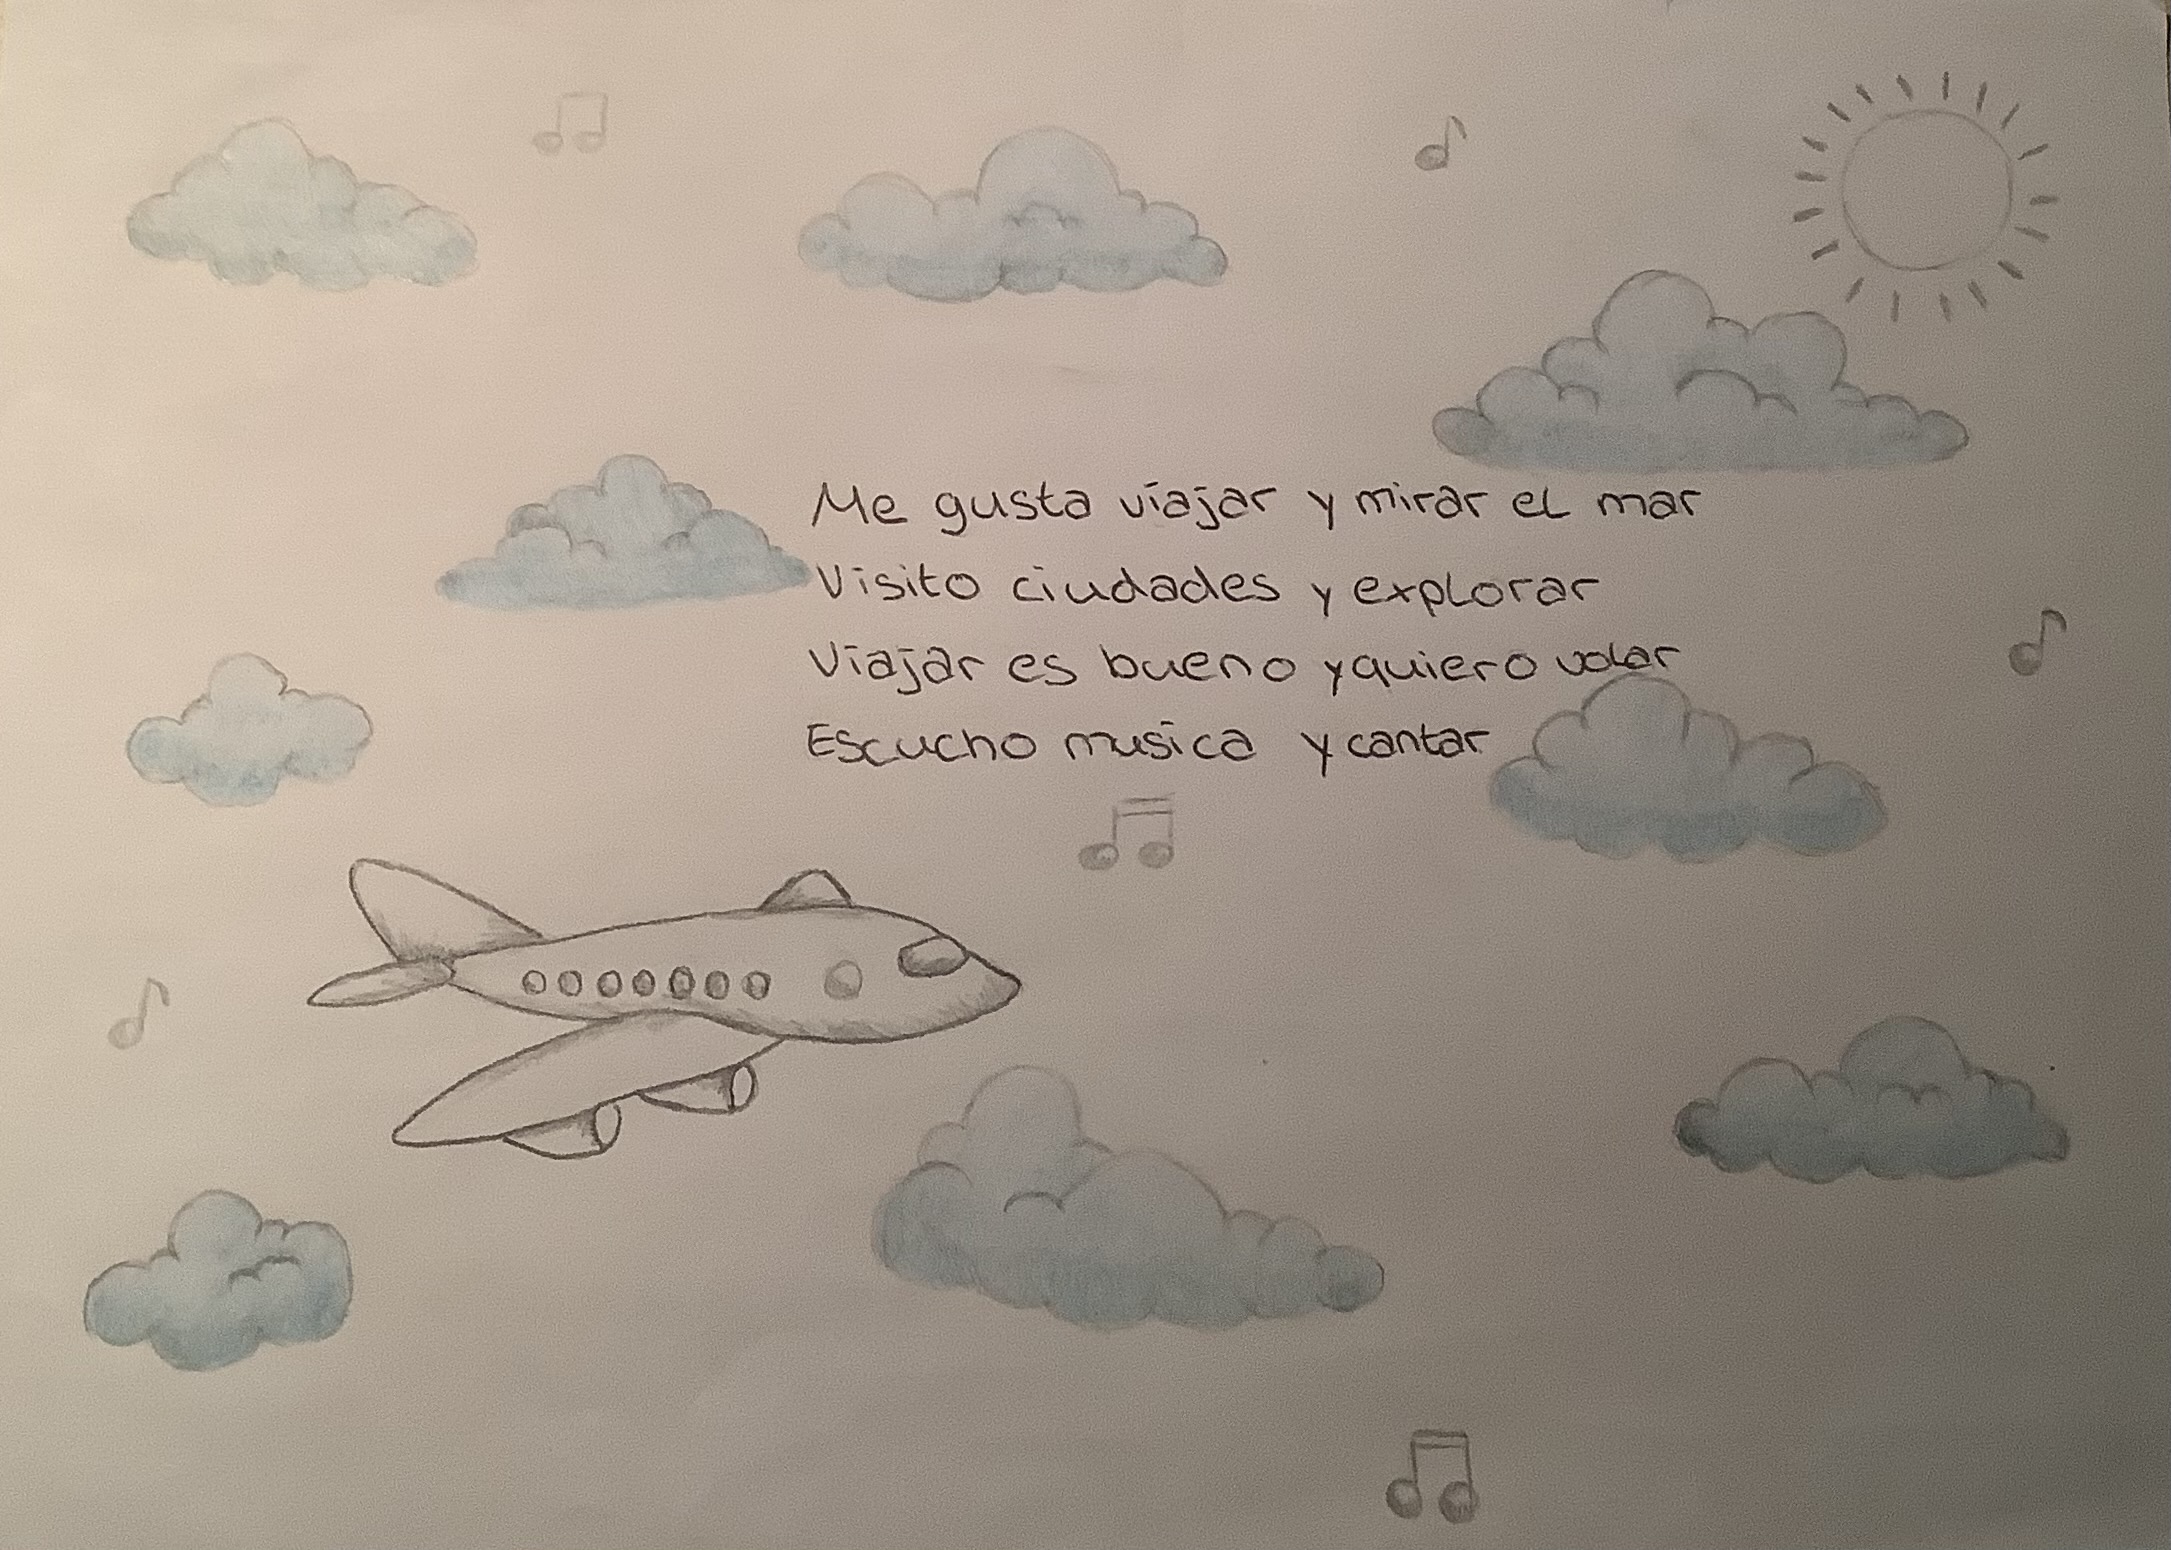 Me gusta viajar y mirar el mar
Visito ciudades y explorar
Viajar es bueno y quiero volar
Escucho musica y cantar